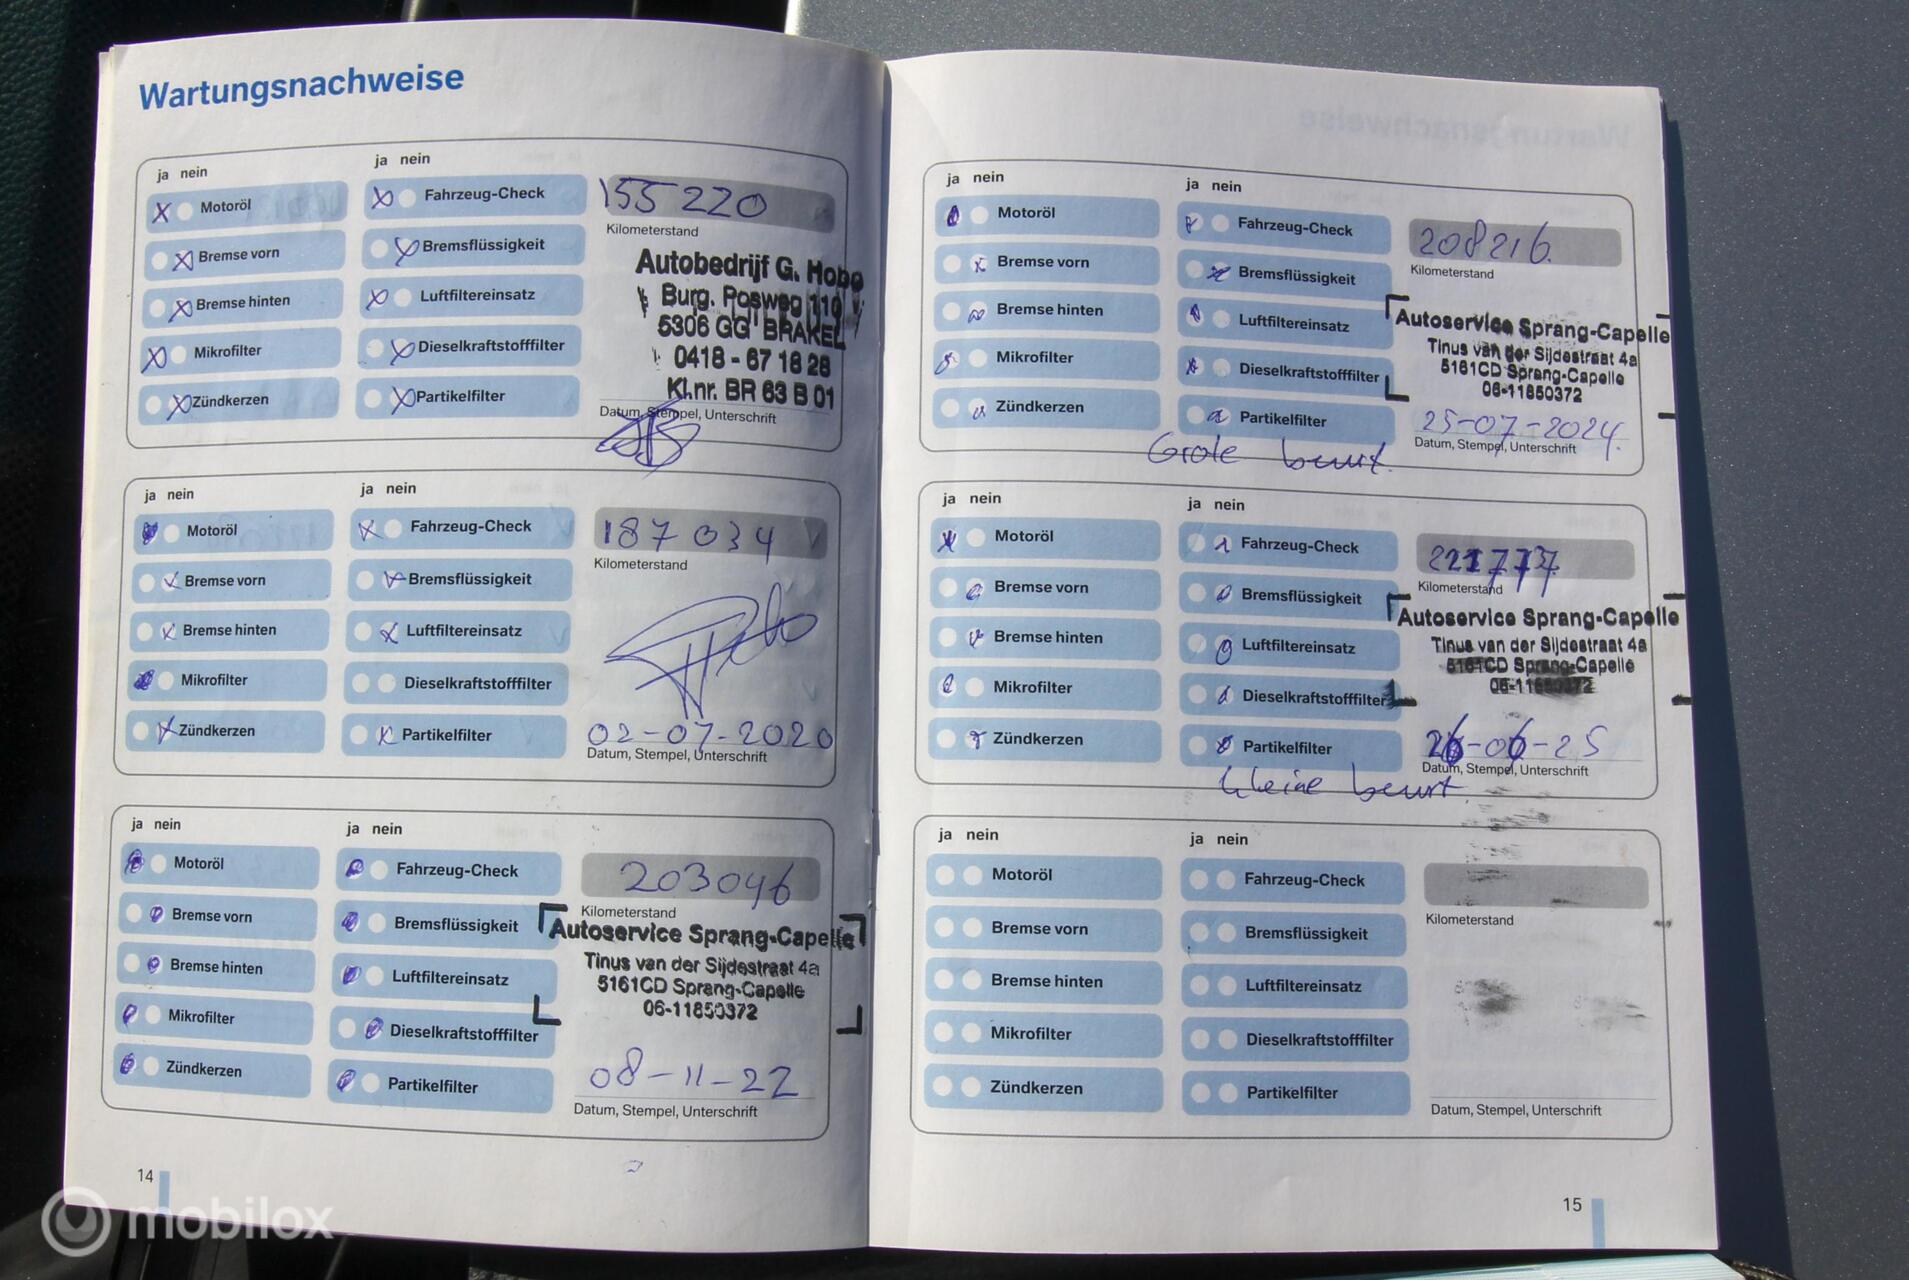 Wartungsnachweise
ja nein
Motoröl
Bremse vorn
Bremse hinten
Mikrofilter
Zündkerzen
ja nein
Fahrzeug-Check
Bremsflüssigkeit
Luftfiltereinsatz
Dieselkraftstofffilter
Partikelfilter
155220
Kilometerstand
Autobedrijf G. Hobo
Burg. Posweg 110
5306 GG BRAKEL
0418 - 67 18 28
Kl.nr. BR 63 B 01
Datum, Stempel, Unterschrift
ja nein
Motoröl
Bremse vorn
Bremse hinten
Mikrofilter
Zündkerzen
ja nein
Fahrzeug-Check
Bremsflüssigkeit
Luftfiltereinsatz
Dieselkraftstofffilter
Partikelfilter
187034
Kilometerstand
02-07-2020
Datum, Stempel, Unterschrift
ja nein
Motoröl
Bremse vorn
Bremse hinten
Mikrofilter
Zündkerzen
ja nein
Fahrzeug-Check
Bremsflüssigkeit
Luftfiltereinsatz
Dieselkraftstofffilter
Partikelfilter
203046
Kilometerstand
Autoservice Sprang-Capelle
Tinus van der Sijdestraat 4a
5161CD Sprang-Capelle
06-11850372
08-11-22
Datum, Stempel, Unterschrift
14
ja nein
Motoröl
Bremse vorn
Bremse hinten
Mikrofilter
Zündkerzen
ja nein
Fahrzeug-Check
Bremsflüssigkeit
Luftfiltereinsatz
Dieselkraftstofffilter
Partikelfilter
208216
Kilometerstand
Autoservice Sprang-Capelle
Tinus van der Sijdestraat 4a
5161CD Sprang-Capelle
06-11850372
25-07-2024
Datum, Stempel, Unterschrift
Grote beurt.
ja nein
Motoröl
Bremse vorn
Bremse hinten
Mikrofilter
Zündkerzen
ja nein
Fahrzeug-Check
Bremsflüssigkeit
Luftfiltereinsatz
Dieselkraftstofffilter
Partikelfilter
Kilometerstand
Autoservice Sprang-Capelle
Tinus van der Sijdestraat 4a
5161CD Sprang-Capelle
06-11850372
26-06-25
Datum, Stempel, Unterschrift
kleine beurt
ja nein
Motoröl
Bremse vorn
Bremse hinten
Mikrofilter
Zündkerzen
ja nein
Fahrzeug-Check
Bremsflüssigkeit
Luftfiltereinsatz
Dieselkraftstofffilter
Partikelfilter
Kilometerstand
Datum, Stempel, Unterschrift
15
mobilox